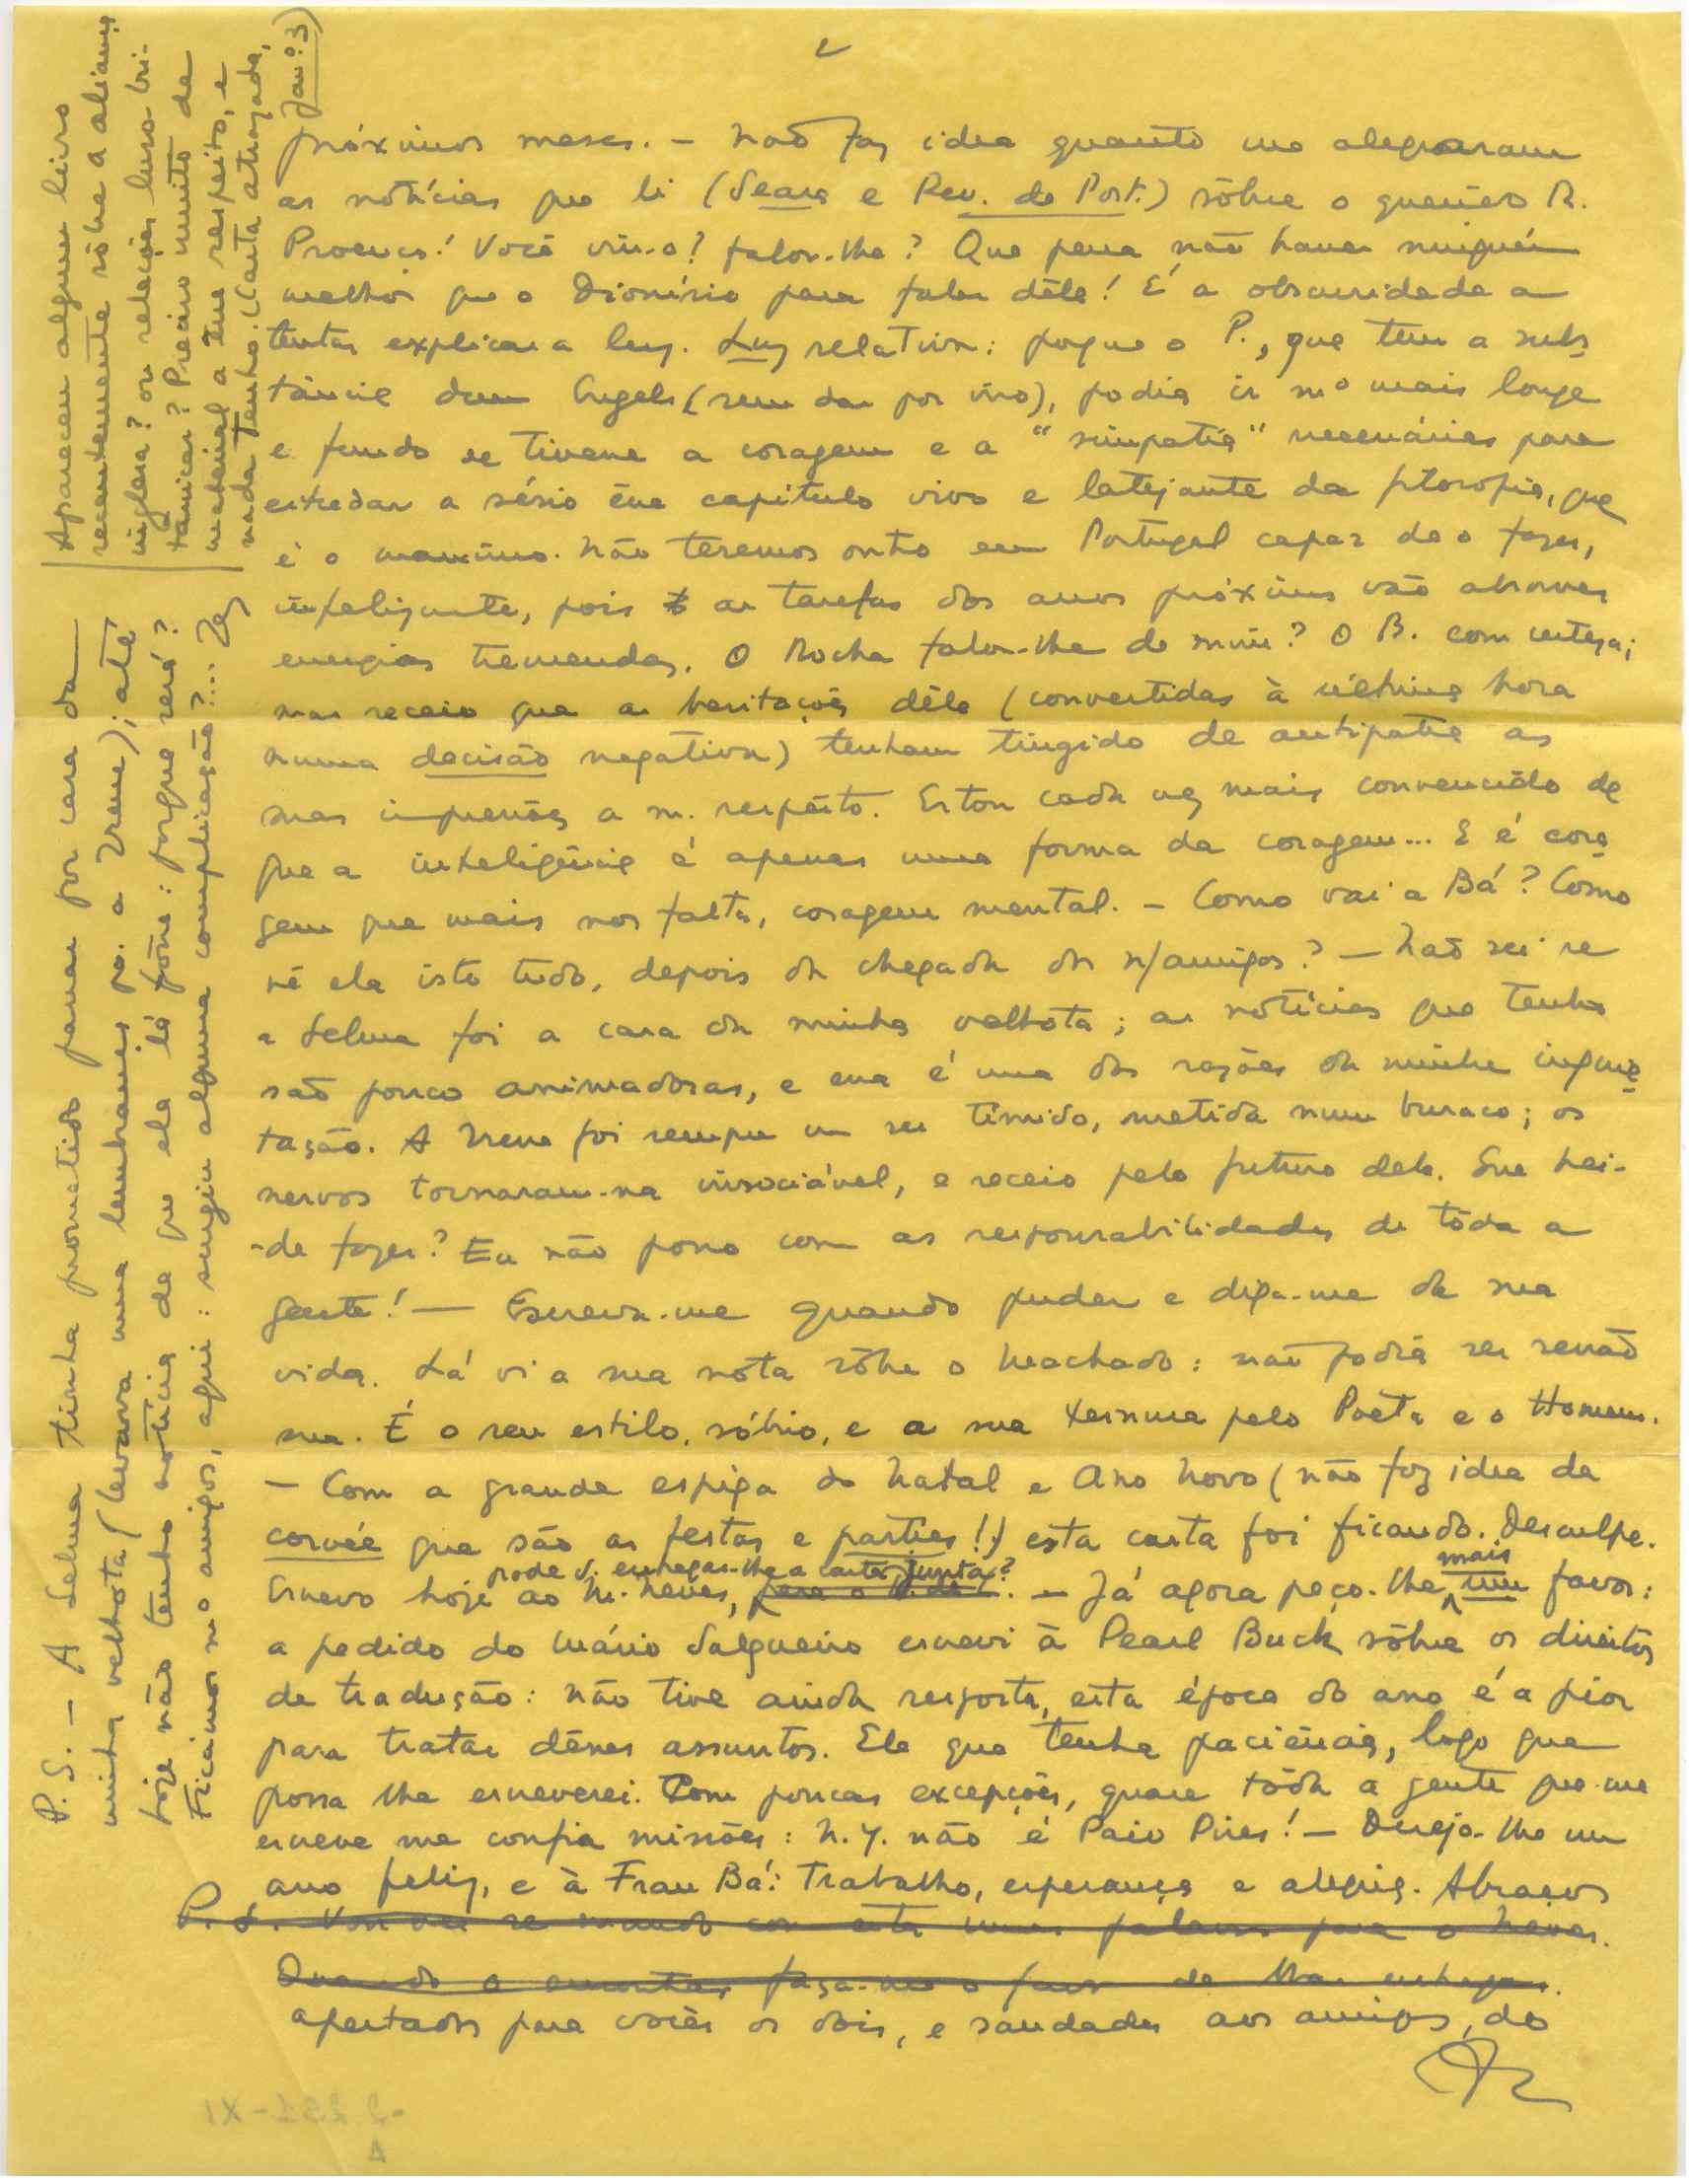 2
próximos meses. – Não faz idea quanto me alegraram
as notícias que li (Seara e Rev. de Port.) sôbre o querido R.
Proença! Você viu-o? falou-lhe? Que pena não haver ninguém
melhor que o Dionísio para falar dêle! É a obscuridade a
tentar explicar a luz. Luz relativa: porque o P., que tem a subs
tância dum Engels (sem dar por isso), podia ir mº mais longe
e fundo se tivesse a coragem e a "simpatia" necessárias para
estudar a sério êsse capítulo vivo e latejante da filosofia, que
é o marxismo. Não teremos outro em Portugal capaz de o fazer,
infelizmente, pois as tarefas dos anos próximos vão absorver
energias tremendas. O Rocha falou-lhe de mim? O B. com certeza;
mas receio que as hesitações dêle (convertidas à última hora
numa decisão negativa) tenham tingido de antipatia as
suas impressões a m. respeito. Estou cada vez mais convencido de
que a inteligência é apenas uma forma da coragem... E é cora
gem que mais nos falta, coragem mental. – Como vai a Bá? Como
vê ela isto tudo, depois da chegada dos n/amigos? – Não sei se
a Selma foi a casa da minha velhota; as notícias que tenho
são pouco animadoras, e essa é uma das razões da minha inquie
tação. A Irene foi sempre um ser tímido, metida num buraco; os
nervos tornaram-na insociável, e receio pelo futuro dela. Que hei-
-de fazer? Eu não posso com as responsabilidades de tôda a
gente! — Escreva-me quando puder e diga-me da sua
vida. Lá vi a sua nota sôbre o Machado: não podia ser senão
sua. É o seu estilo, sóbrio, e a sua ternura pelo Poeta e o Homem.
– Com a grande espiga do Natal e Ano Novo (não faz idea da
corvée que são as festas e parties!) esta carta foi ficando. Desculpe.
pode V. entregar-lhe a carta junta? mais
Escrevo hoje ao M. Neves, . – Já agora peço-lhe um favor:
a pedido do Mário Salgueiro escrevi à Pearl Buck sôbre os direitos
de tradução: não tive ainda resposta, esta época do ano é a pior
para tratar dêsses assuntos. Ele que tenha paciência, logo que
possa lhe escreverei. Com poucas excepções, quase tôda a gente que me
escreve me confia missões: N.Y. não é Paio Pires! – Desejo-lhe um
ano feliz, e à Frau Bá: Trabalho, esperança e alegria. Abraços
P.S. Vou ver se mando com esta umas palavras para o Neves.
Quando o encontrar faça-me o favor de lhas entregar.
apertados para vocês os dois, e saudades aos amigos, do
P.S. – A Selma tinha prometido passar por casa da
minha velhota (levava uma lembrança pa. a Irene); até
hoje não tenho notícia de que ela lá fôsse: porque será?
Ficámos mto amigos, aqui: surgiu alguma complicação?...
Apareceu algum livro
recentemente sôbre a aliança
inglesa? ou relações luso-bri-
tânicas? Preciso muito de
material a êsse respeito, e
nada tenho. (Carta atrasada,
Jan.º 3)
2251-XI
A